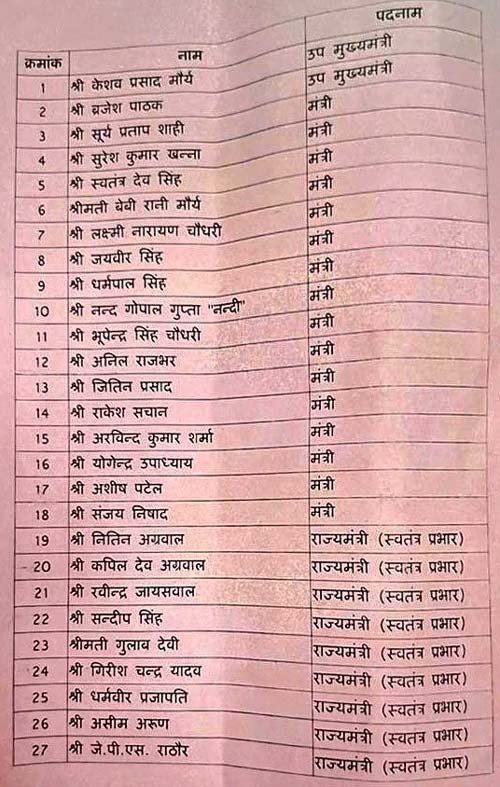 क्रमांक नाम पदनाम
1 श्री केशव प्रसाद मौर्य उप मुख्यमंत्री
2 श्री ब्रजेश पाठक उप मुख्यमंत्री
3 श्री सूर्य प्रताप शाही मंत्री
4 श्री सुरेश कुमार खन्ना मंत्री
5 श्री स्वतंत्र देव सिंह मंत्री
6 श्रीमती बेबी रानी मौर्य मंत्री
7 श्री लक्ष्मी नारायण चौधरी मंत्री
8 श्री जयवीर सिंह मंत्री
9 श्री धर्मपाल सिंह मंत्री
10 श्री नन्द गोपाल गुप्ता "नन्दी" मंत्री
11 श्री भूपेन्द्र सिंह चौधरी मंत्री
12 श्री अनिल राजभर मंत्री
13 श्री जितिन प्रसाद मंत्री
14 श्री राकेश सचान मंत्री
15 श्री अरविन्द कुमार शर्मा मंत्री
16 श्री योगेन्द्र उपाध्याय मंत्री
17 श्री अशीष पटेल मंत्री
18 श्री संजय निषाद मंत्री
19 श्री नितिन अग्रवाल राज्यमंत्री (स्वतंत्र प्रभार)
20 श्री कपिल देव अग्रवाल राज्यमंत्री (स्वतंत्र प्रभार)
21 श्री रवीन्द्र जायसवाल राज्यमंत्री (स्वतंत्र प्रभार)
22 श्री सन्दीप सिंह राज्यमंत्री (स्वतंत्र प्रभार)
23 श्रीमती गुलाब देवी राज्यमंत्री (स्वतंत्र प्रभार)
24 श्री गिरीश चन्द्र यादव राज्यमंत्री (स्वतंत्र प्रभार)
25 श्री धर्मवीर प्रजापति राज्यमंत्री (स्वतंत्र प्रभार)
26 श्री असीम अरुण राज्यमंत्री (स्वतंत्र प्रभार)
27 श्री जे.पी.एस. राठौर राज्यमंत्री (स्वतंत्र प्रभार)